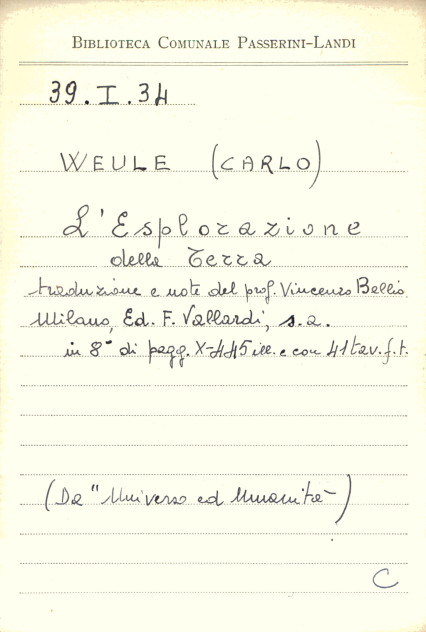 BIBLIOTECA COMUNALE PASSERINI-LANDI
39.I.34
WEULE (CARLO)
L'Esplorazione
della Terra
traduzione e note del prof. Vincenzo Bellio
Milano, Ed. F. Vallardi, s.a.
in 8° di pagg. X-445 ill. e con 41 tav. f.t.
(Da "Universo ed Umanità")
C